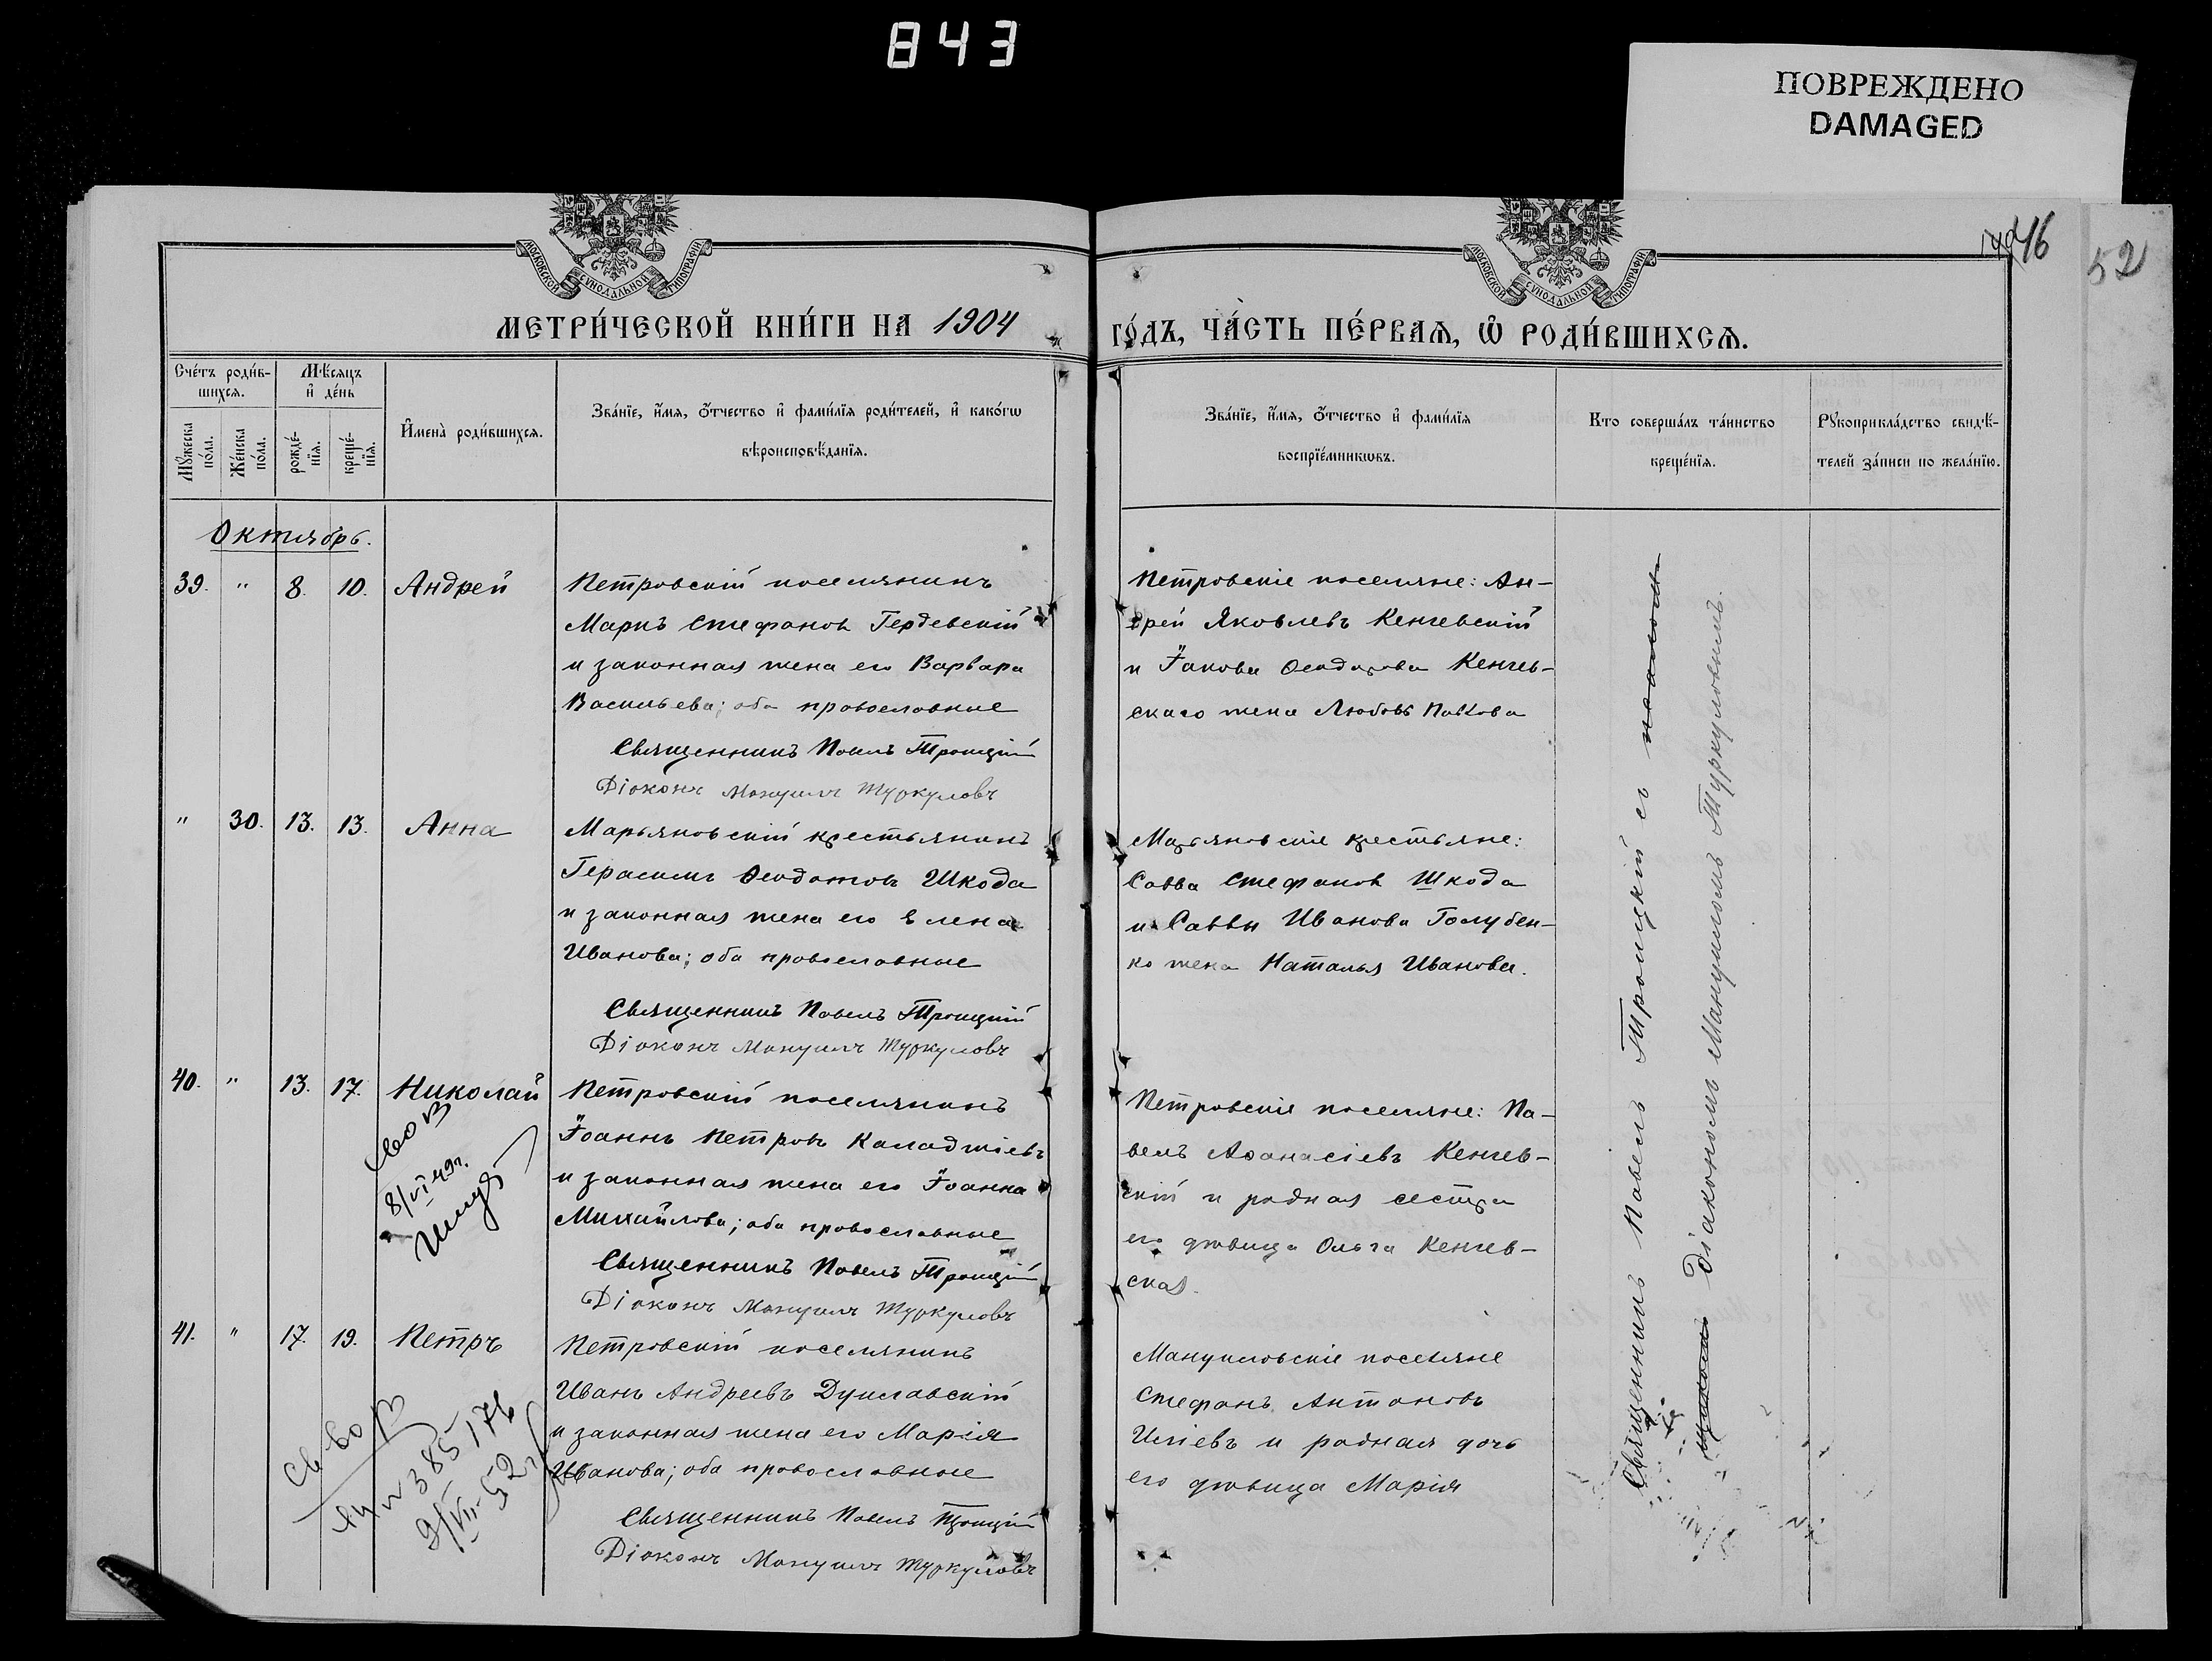 843
ПОВРЕЖДЕНО
DAMAGED
МОСКОВСКОЙ СѴНОДАЛЬНОЙ ТИПОГРАФІИ
МОСКОВСКОЙ СѴНОДАЛЬНОЙ ТИПОГРАФІИ
46
52
МЕТРИ́ЧЕСКОЙ КНИ́ГИ НА 1904
ГО́ДЪ, ЧА́СТЬ ПЕ́РВАѦ, Ѽ РОДИ́ВШИХСѦ.
Сче́тъ роди́в-
шихсѧ.
Мѣ́сяцъ
и҆ де́нь
Мꙋ́жеска по́ла.
Же́нска по́ла.
рожде́-
нїѧ.
креще́-
нїѧ.
И҆мена̀ роди́вшихсѧ.
Зва́нїе, и҆́мѧ, ѻ҆́тчество и҆ фами́лїѧ роди́телей, и҆ како́гѡ
вѣроисповѣ́данїѧ.
Зва́нїе, и҆́мѧ, ѻ҆́тчество и҆ фами́лїѧ
воспрїе́мникѡвъ.
Кто соверша́лъ та́инство
креще́нїѧ.
Рꙋкоприкла́дство свидѣ́-
телей за́писи по жела́нїю.
Октябрь.
39. " 8. 10. Андрей
Петровскій поселянинъ
Маркъ Стефановъ Гердевскій
и законная жена его Варвара
Васильева; оба православные
Священникъ Павелъ Троицкій
Діаконъ Мануилъ Туркуловъ
Петровскіе поселяне: Ан-
дрей Яковлевъ Кенчевскій
и Іакова Ѳеодорова Кенчев-
скаго жена Любовь Павлова
" 30. 13. 13. Анна
Марьяновскій крестьянинъ
Герасимъ Ѳеодотовъ Шкода
и законная жена его Елена
Иванова; оба православные
Священникъ Павелъ Троицкій
Діаконъ Мануилъ Туркуловъ
Марьяновскіе крестьяне:
Савва Стефановъ Шкода
и Саввы Иванова Голубен-
ко жена Наталья Иванова.
40. " 13. 17. Николай
Петровскій поселянинъ
Іоаннъ Петровъ Каладжіевъ
и законная жена его Іоанна
Михайлова; оба православные
Священникъ Павелъ Троицкій
Діаконъ Мануилъ Туркуловъ
8/VI 49г.
Петровскіе поселяне: Па-
велъ Аѳанасіевъ Кенчев-
скій и родная сестра
его дѣвица Ольга Кенчев-
ская.
41. " 17. 19. Петръ
Петровскій поселянинъ
Иванъ Андреевъ Дуиславскій
и законная жена его Марія
Иванова; оба православные
Священникъ Павелъ Троицкій
Діаконъ Мануилъ Туркуловъ
385176
9/VII-52
Мануиловскіе поселяне
Стефанъ Антоновъ
Иліевъ и родная дочь
его дѣвица Марія
Священникъ Павелъ Троицкій съ
Діакономъ Мануиломъ Туркуловымъ.